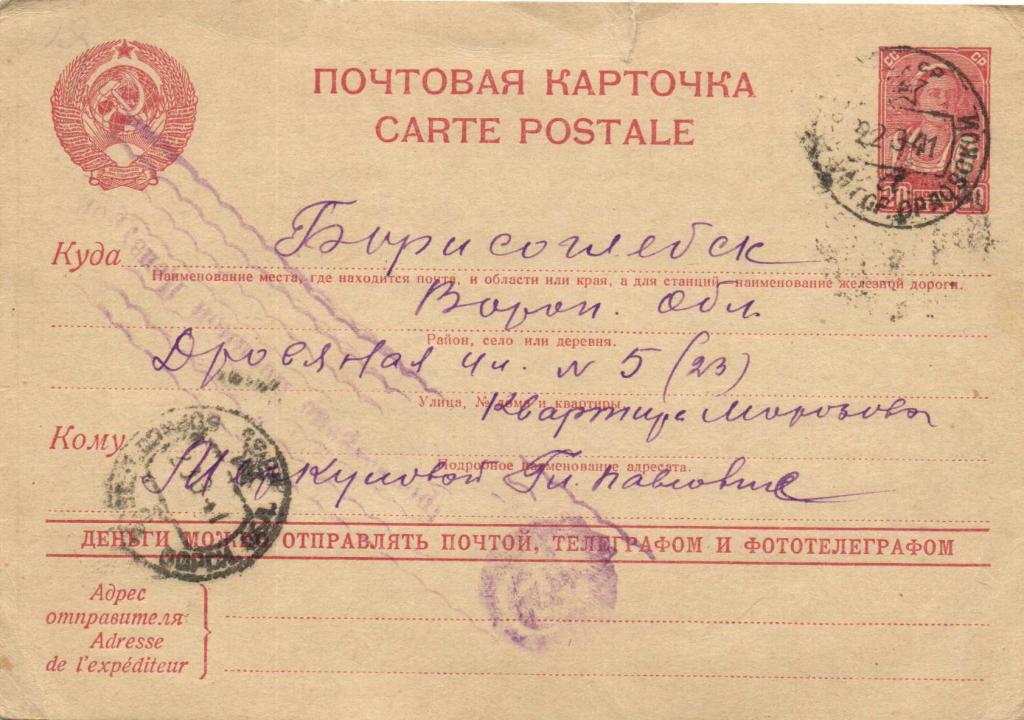 ПОЧТОВАЯ КАРТОЧКА
CARTE POSTALE
СССР
22.9.41
ОРЛОВСКОЙ
Куда Борисоглебск
Наименование места, где находится почта, и области или края, а для станций—наименование железной дороги.
Ворон. Обл.
Район, село или деревня.
Дровяная ул. N 5 (23)
Улица, № дома и квартиры.
Квартира Морозова
Кому
Подробное наименование адресата.
Меркуловой Гл. Павловне
ДЕНЬГИ МОЖНО ОТПРАВЛЯТЬ ПОЧТОЙ, ТЕЛЕГРАФОМ И ФОТОТЕЛЕГРАФОМ
Адрес
отправителя
Adresse
de l'expéditeur